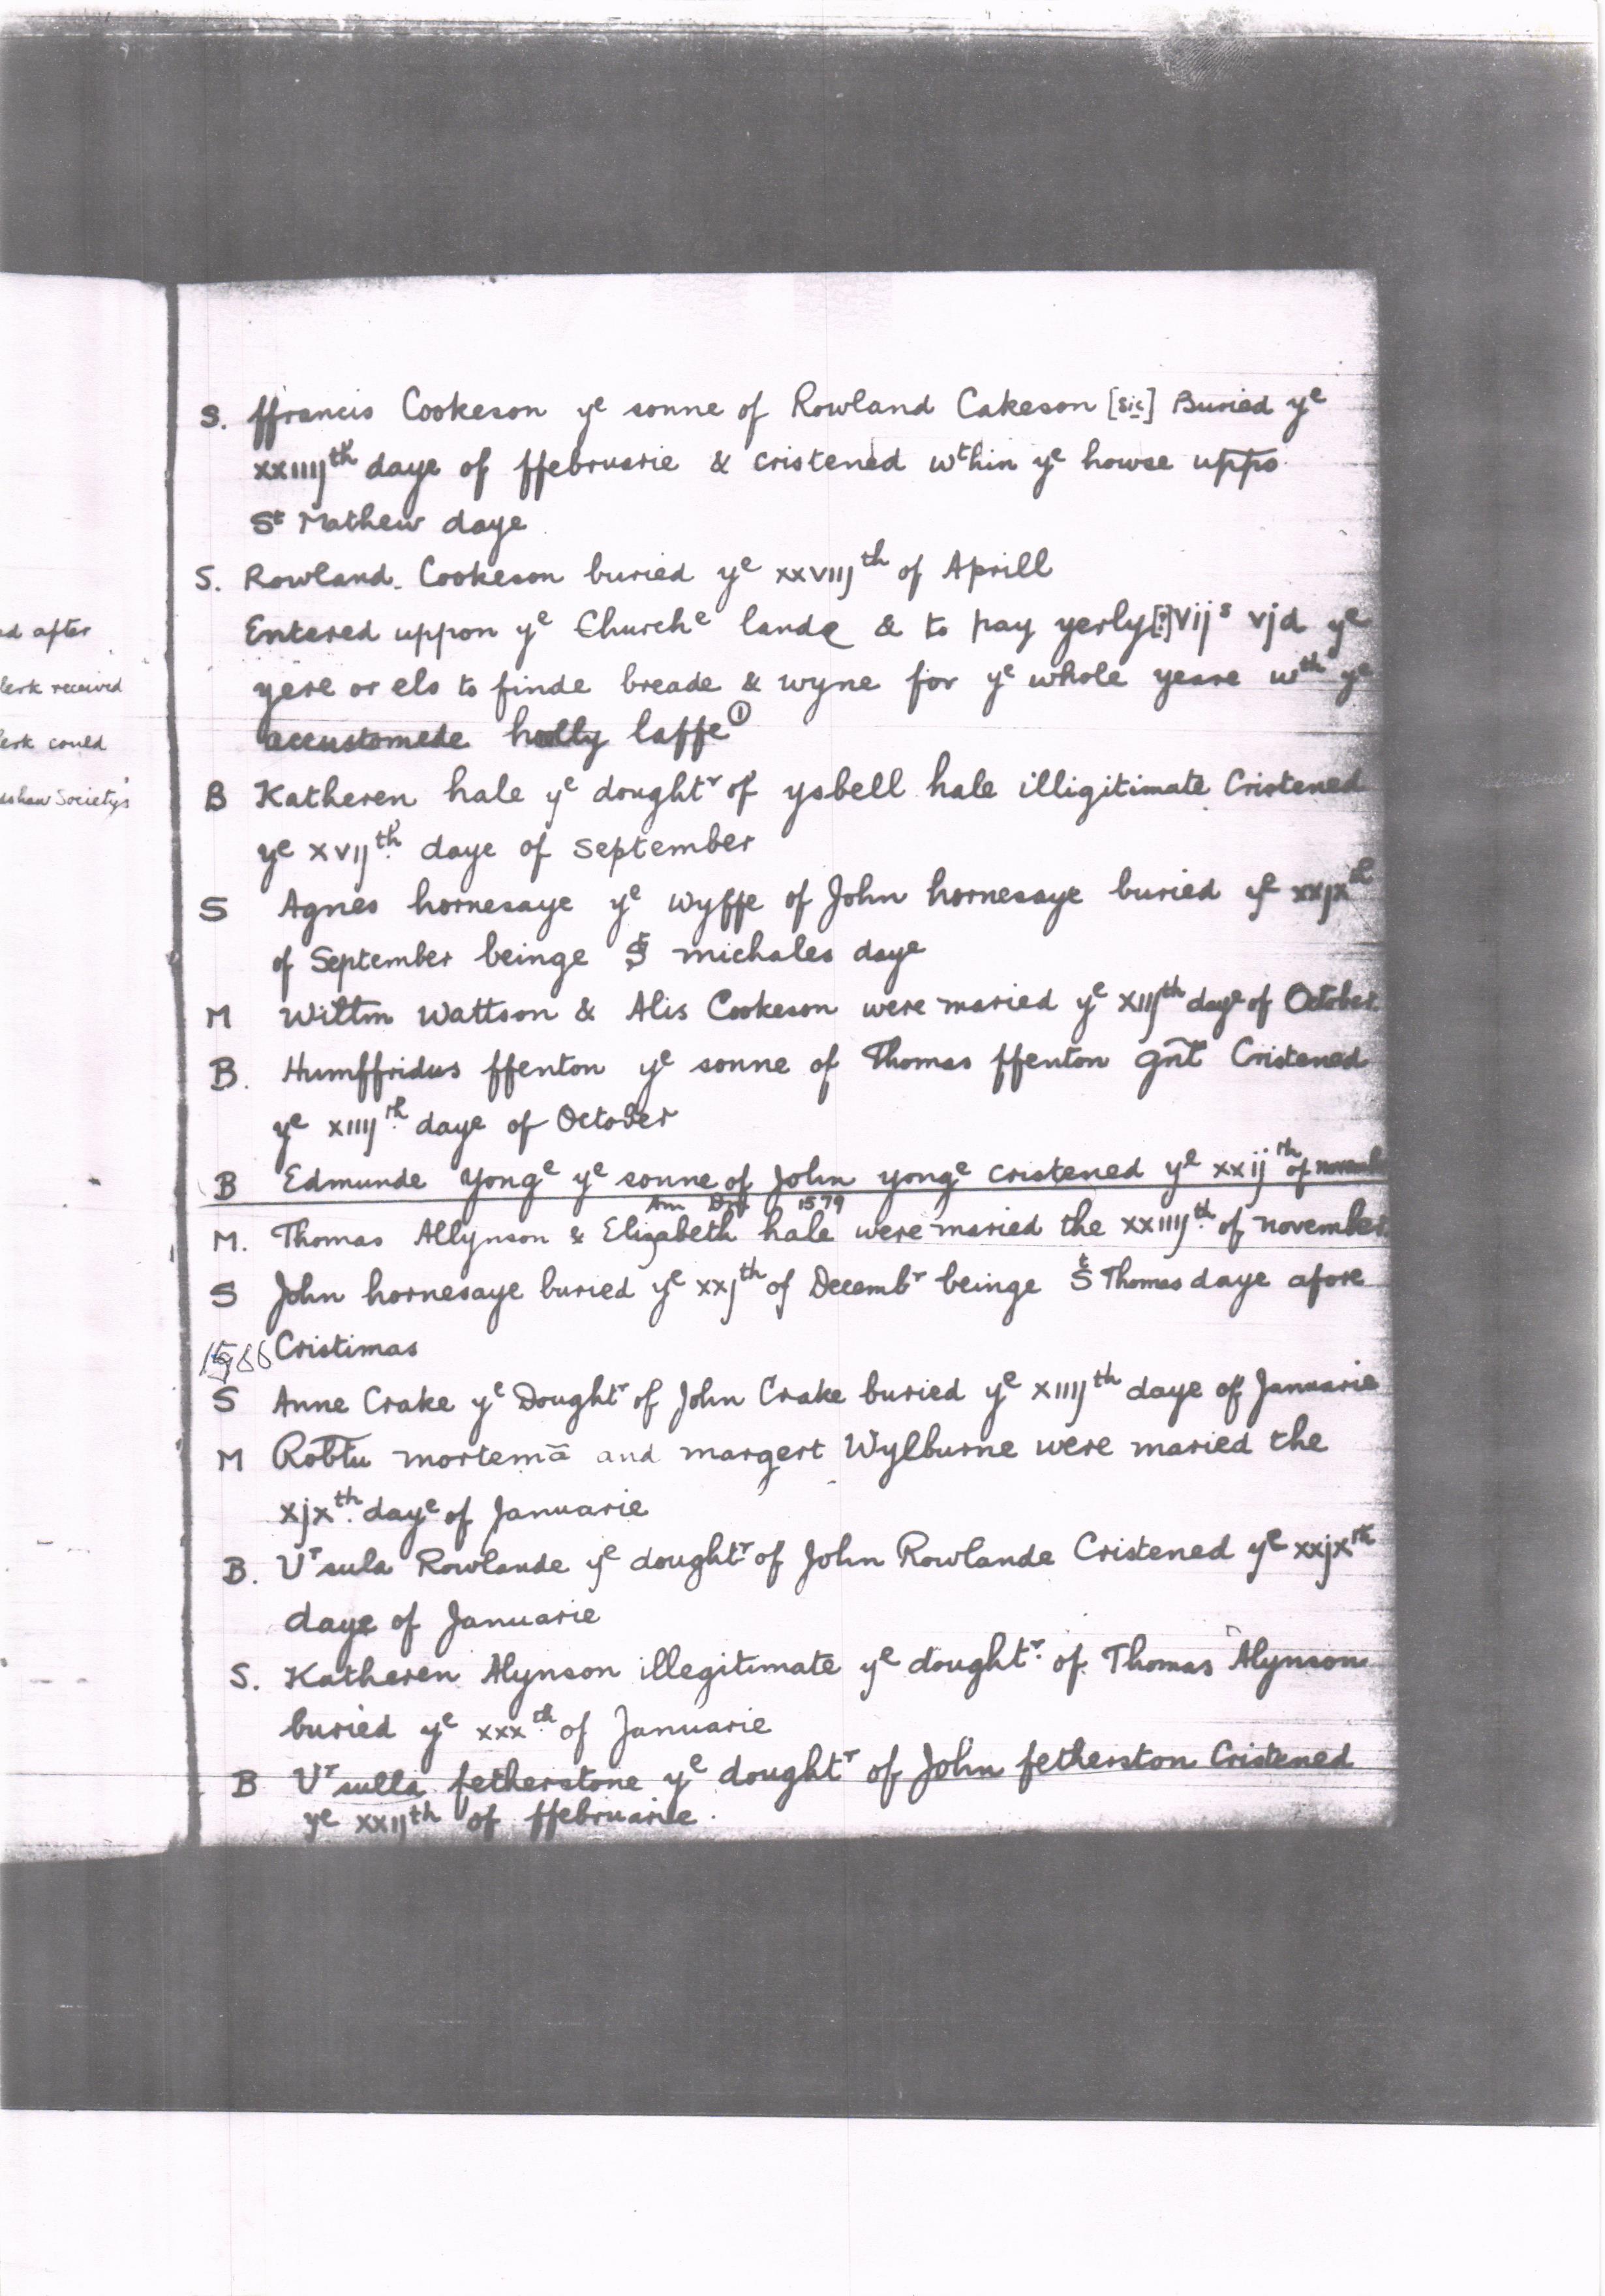 S. ffrancis Cookeson yᵉ sonne of Rowland Cakeson [sic] Buried yᵉ
xxiiijᵗʰ daye of ffebruarie & cristened wᵗhin yᵉ howse uppo
Sᵗ Mathew daye
S. Rowland Cookeson buried yᵉ xxviijᵗʰ of Aprill
Entered uppon yᵉ Churchᵉ lande & to pay yerly [?] vijˢ vjd yᵉ
yere or els to finde breade & wyne for yᵉ whole yeare wᵗʰ yᵉ
accustomede holly laffe ①
B Katheren hale yᵉ doughtʳ of ysbell hale illigitimate Cristened
yᵉ xvijᵗʰ daye of September
S Agnes hornesaye yᵉ wyffe of John hornesaye buried yᵉ xxjxᵗʰ
of September beinge Sᵗ michales daye
M Willm Wattson & Alis Cookeson were maried yᵉ xiijᵗʰ dayᵉ of October
B. Humffridus ffenton yᵉ sonne of Thomas ffenton gnt Cristened
yᵉ xiiijᵗʰ daye of October
B Edmunde Yongᵉ yᵉ sonne of John yongᵉ cristened yᵉ xxijᵗʰ of novemb
Ann Dm 1579
M. Thomas Allynson & Elizabeth hale were maried the xxiiijᵗʰ of november
S John hornesaye buried yᵉ xxjᵗʰ of Decembʳ beinge Sᵗ Thomas daye afore
Cristimas
S Anne Crake yᵉ Doughtʳ of John Crake buried yᵉ xiiijᵗʰ daye of Januarie
M Robtu mortemā and margert Wylburne were maried the
xjxᵗʰ dayᵉ of Januarie
B. Uʳsula Rowlande yᵉ doughtʳ of John Rowlande Cristened yᵉ xxjxᵗʰ
daye of Januarie
S. Katheren Alynson illegitimate yᵉ doughtʳ of Thomas Alynson
buried yᵉ xxxᵗʰ of Januarie
B Uʳsulla fetherstone yᵉ doughtʳ of John fetherston Cristened
yᵉ xxijᵗʰ of ffebruarie.
d after
lerk received
lerk could
shaw Society's